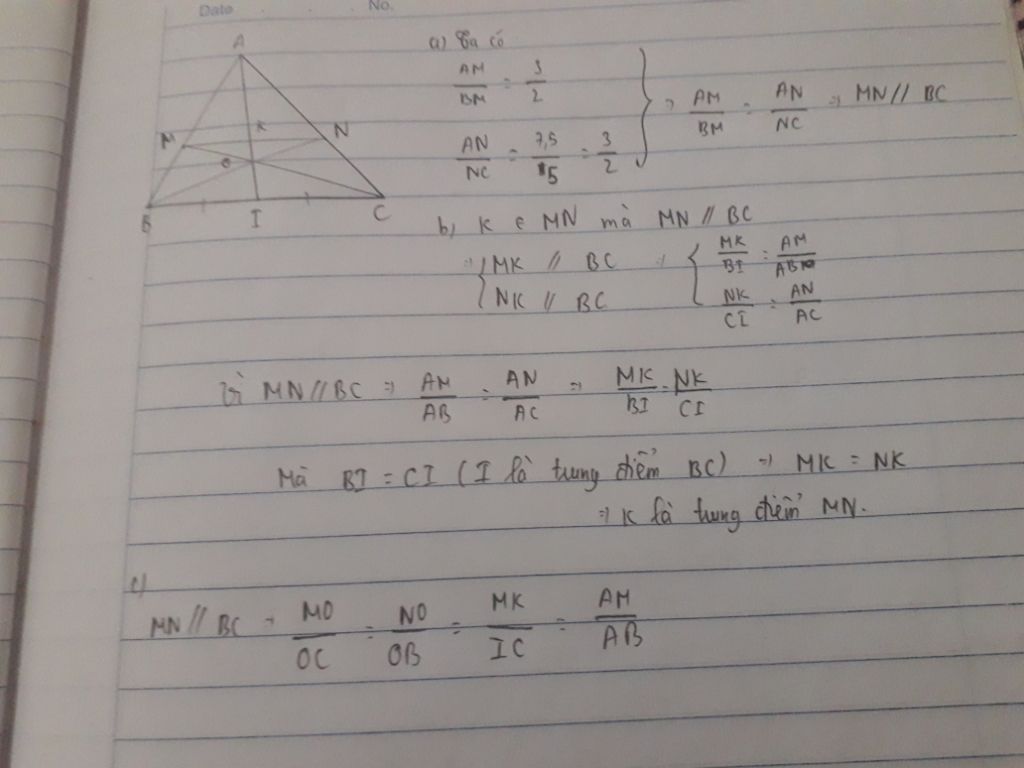 Date No.
A
M
K
N
O
B
I
C
a) Ta có
AM/BM = 3/2
AN/NC = 7,5/5 = 3/2
⇒ AM/BM = AN/NC ⇒ MN // BC
b) K ∈ MN mà MN // BC
⇒ { MK // BC ⇒ { MK/BI = AM/AB
NK // BC NK/CI = AN/AC
Vì MN // BC ⇒ AM/AB = AN/AC ⇒ MK/BI = NK/CI
Mà BI = CI (I là trung điểm BC) ⇒ MK = NK
⇒ K là trung điểm MN.
c)
MN // BC ⇒ MO/OC = NO/OB = MK/IC = AM/AB